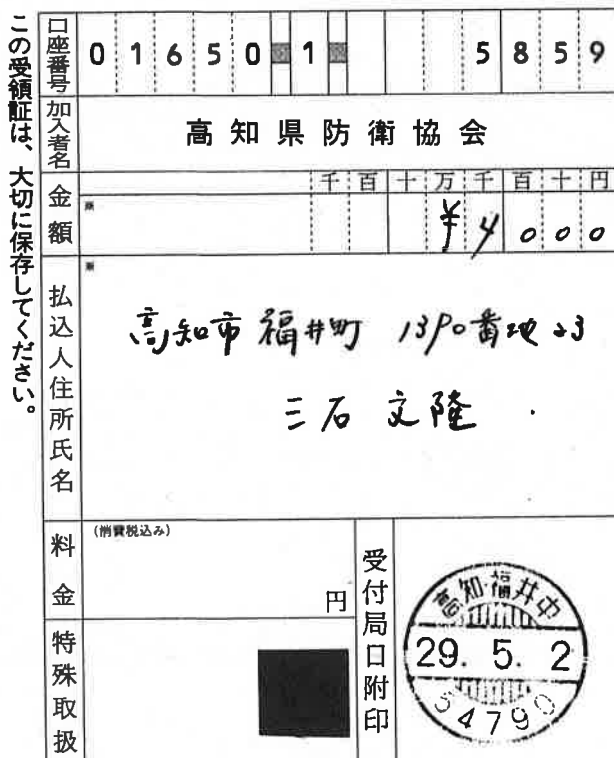 この受領証は、大切に保存してください。
口座番号 01650 1 5859
加入者名 高知県防衛協会
金額 千百十万千百十円
※ ¥4000
払込人住所氏名 ※
高知市福井町 1390番地23
三石 文隆
料金 (消費税込み) 円
特殊取扱
受付局日附印
高知福井中
29. 5. 2
54790